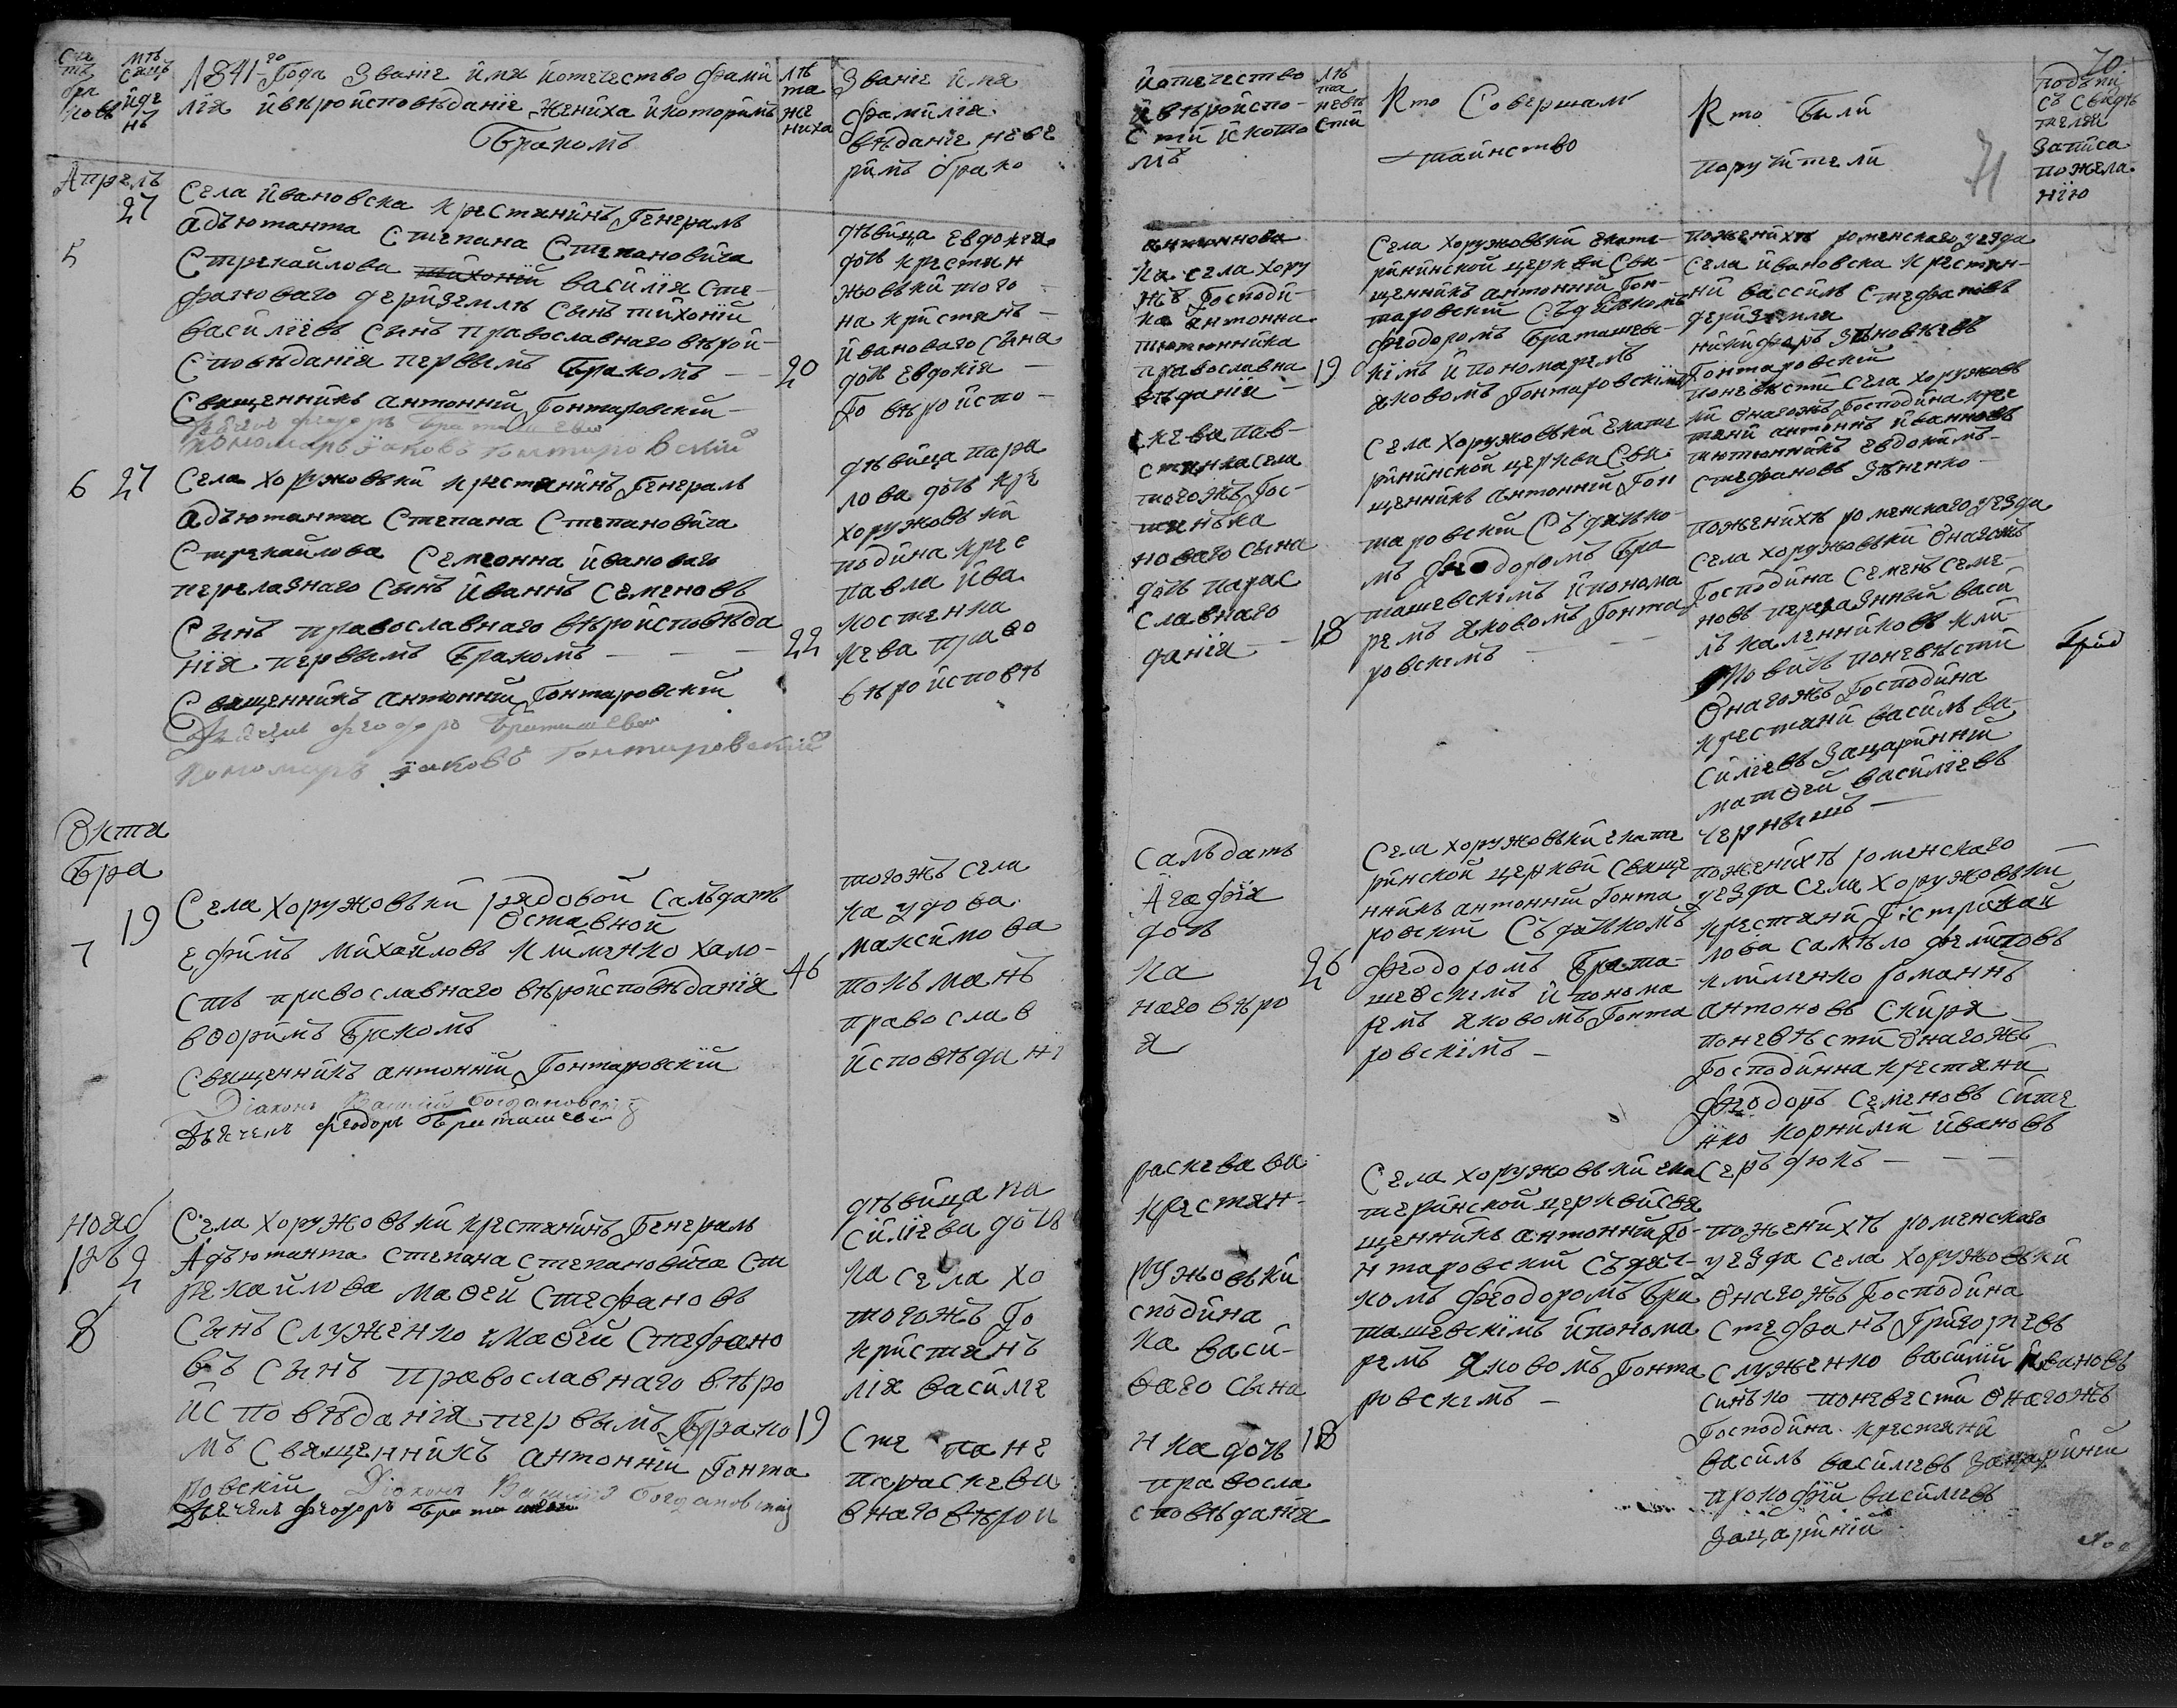 Сче
тъ
бра
ковъ
мѣ
сяцъ
и де
нь
1841-го Года Званіе имя иотечество фами
лія ивѣроисповѣданіе жениха икоторимъ
Бракомъ
лѣ
та
же
ниха
Званіе имя
фамилія
вѣданіе неве
римъ брако
Апрель
27
5
Села Ивановска крестянинъ Генералъ
Адъютанта Степана Степановича
Стрекайлова тихоній василія Сте-
фановаго дериземля Сынъ тихоній
василіевъ Сынъ православнаго вѣрои-
сповѣданія первымъ Бракомъ - -
20
Священникъ антонній Гонтаровскій
пономарь Іаковъ Гонтаровскій
дѣвица Евдокія
дочь крестян
жовьки того
на крістянъ -
Ивановаго Сына
дочь Евдокія -
го вѣроиспо-
6 27
Села хоружовьки крестянинъ Генералъ
Адъютанта Степана Степановича
Стрекайлова Семеонна Ивановаго
перелазнаго Сынъ Иваннъ Семеновъ
Сынъ православнаго вѣроисповѣда
нія первымъ Бракомъ - - -
22
Священникъ антонній Гонтаровскій
Дьячекъ феодоръ Браташевс
пономарь Іаковъ Гонтаровскій
дѣвица пара
лова дочь кре
хоружовьки
подина крес
павла Ива
костенка
кева право
вѣроисповѣ
Октя
бра
19
7
Села хоружовьки рядовой Сальдатъ
оставной
ефимъ михайловъ клименко холо-
стъ православнаго вѣроисповѣданія
46
вторимъ Бракомъ
Священникъ антонній Гонтаровскій
Діаконъ Василій Богдановскій
Дьячекъ феодоръ Браташевс
тогожъ села
ка удова
максимова
токъманъ
православ
исповѣдані
Нояб
рь 2
8
Села хоружовьки крестянинъ Генералъ
Адъютанта Степана Степановича Ст
рекайлова мафей Стефановъ
Сынъ Служенко мафей Стефано
въ сынъ православнаго вѣро
исповѣданія первымъ Брако
19
мъ Священникъ антонній Гонта
ровскій Діаконъ Василій Богдановскій
Дьячекъ феодоръ Браташевс
дѣвица па
силіева дочь
ка села хо
тогожъ Го
крістянъ
лія василіе
Сте пане
параскеви
внаго вѣрои
иотечество
ивѣроиспо-
сти икото
мъ
лѣ
та
невѣ
сти
Кто Совершалъ
таинство
Кто Били
поручители
71
70
подъпи
съ свидѣ
телей
записа
пожела
нію
антоннова
ка села хору
жъ Господи-
ка антонна
тютюнника
православна
вѣданія -
19
Села хоружовьки екате-
рининской церкви Свя-
щенникъ антонній Гон-
таровскій Съдьякомъ
феодоромъ Браташевс-
кімъ ипономаремъ
яковомъ Гонтаровскімъ
поженихѣ роменскаго уезда
села ивановска крестян-
ни вассиль Стефановъ
дериземля
никифоръ Зѣновьевъ
Гонтаровскій
поневѣсти села хоружовь
ки Онагожъ Господина кре
стяни антоннъ Иванновъ
тютюнникъ евдокимъ-
стефановъ зѣненко -
скева пав-
стянкасела
тогожъ Гос-
тянька
новаго сына
дочь парас
славнаго
данія -
18
Села хоружовьки екате
рининской церкви Свя-
щенникъ антонній Гон
таровскій Съдьяко-
мъ феодоромъ Бра
ташевскімъ ипонома
ремъ яковомъ Гонта
ровскимъ - -
поженихѣ роменскаго уезда
села хоружовьки Онагожъ
Господина Семенъ Семе-
новъ перелазнный васи
лъ каленниковъ кли
повичъ поневѣсти
Онагожъ Господина
крестяни василь ва-
силіевъ зацаринній
матфей василіевъ
чернышъ -
Сальдатъ
Агафія
дочь
ка
наго вѣро
я
26
Села хоружовьки екате
ринской церкви Свяще
нникъ антонній Гонта
ровскій Съдьякомъ
феодоромъ Брата-
шевскимъ ипонома
ремъ яковомъ Гонта
ровскімъ -
поженихѣ роменскаго
уезда села хоружовьки
крестяни Гістрокай
лова самѣло
клименко романнъ
антоновъ Скиря
поневѣсти Онагожъ
Господинна крестяни
феодоръ Семеновъ сите
нко корнилій ивановъ
сердюкъ - - -
раскева ва
крестян-
ружовьки
сподина
ка васи-
ваго сына
н ка дочь
правосла
сповѣданія
18
Села хоружовьки ека
теринской церкви свя
щенникъ антонній Го-
нтаровскій Съдяч-
комъ феодоромъ Бра
ташевскімъ ипонома
ремъ яковомъ Гонта
ровскимъ -
поженихѣ роменскаго
уезда села хоружовьки
Онагожъ Господина
Стефанъ Григорьевъ
служенко василій Ивановъ
синько поневести Онагожъ
Господина крестяни
василь василіевъ зацариній
прокофій василіевъ
зацариній